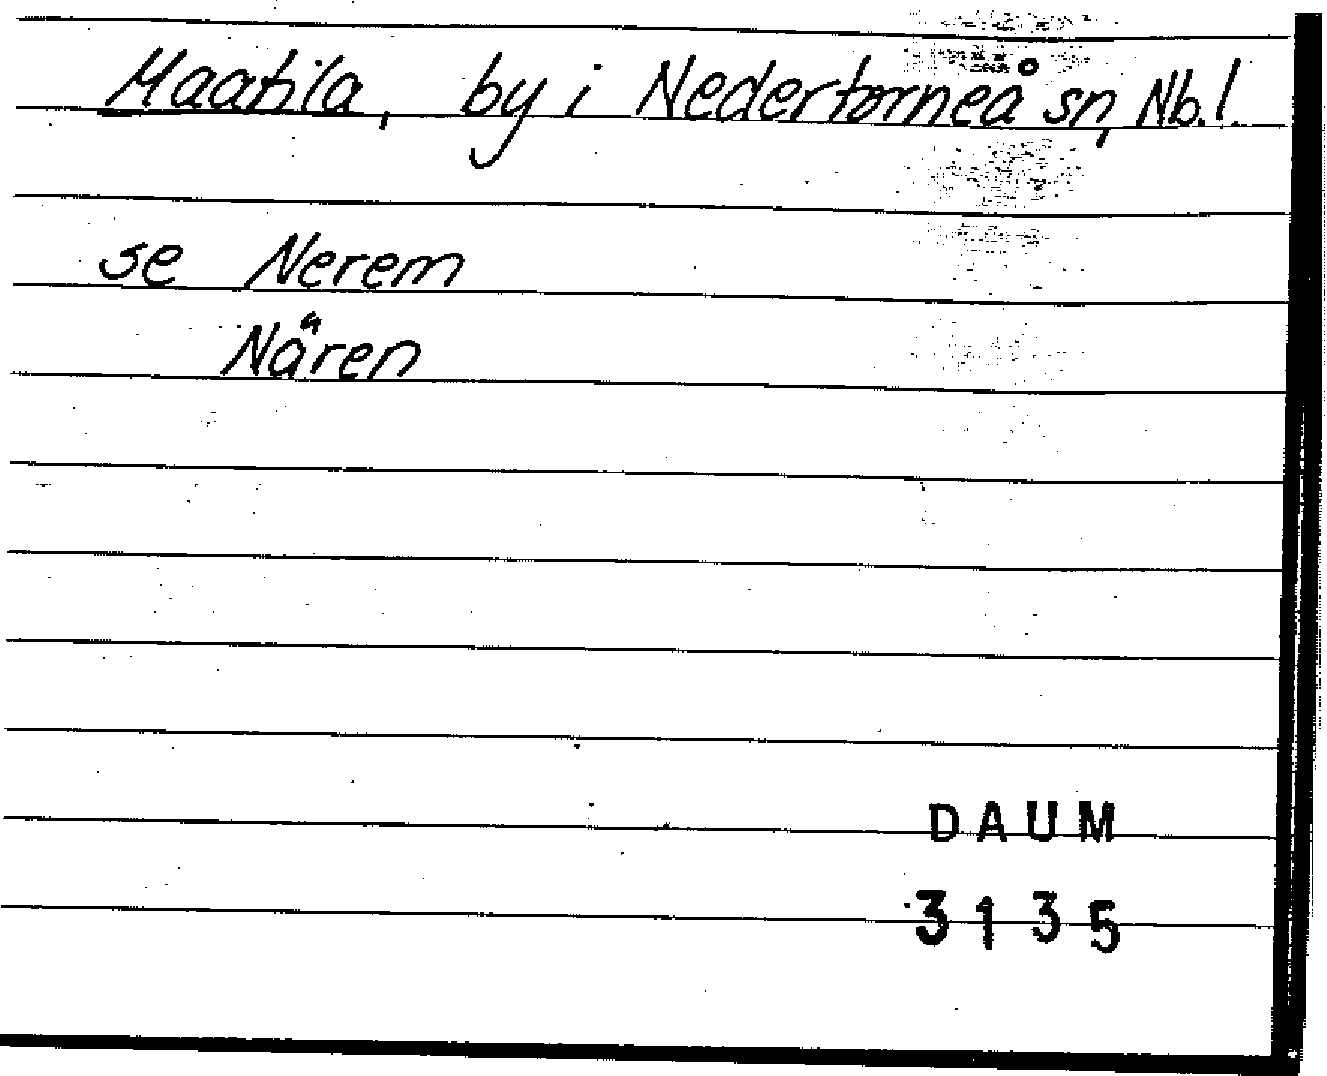 Maatila, by i Nedertorneå sn, Nb.l.
se Nerem
Nären
DAUM
3135